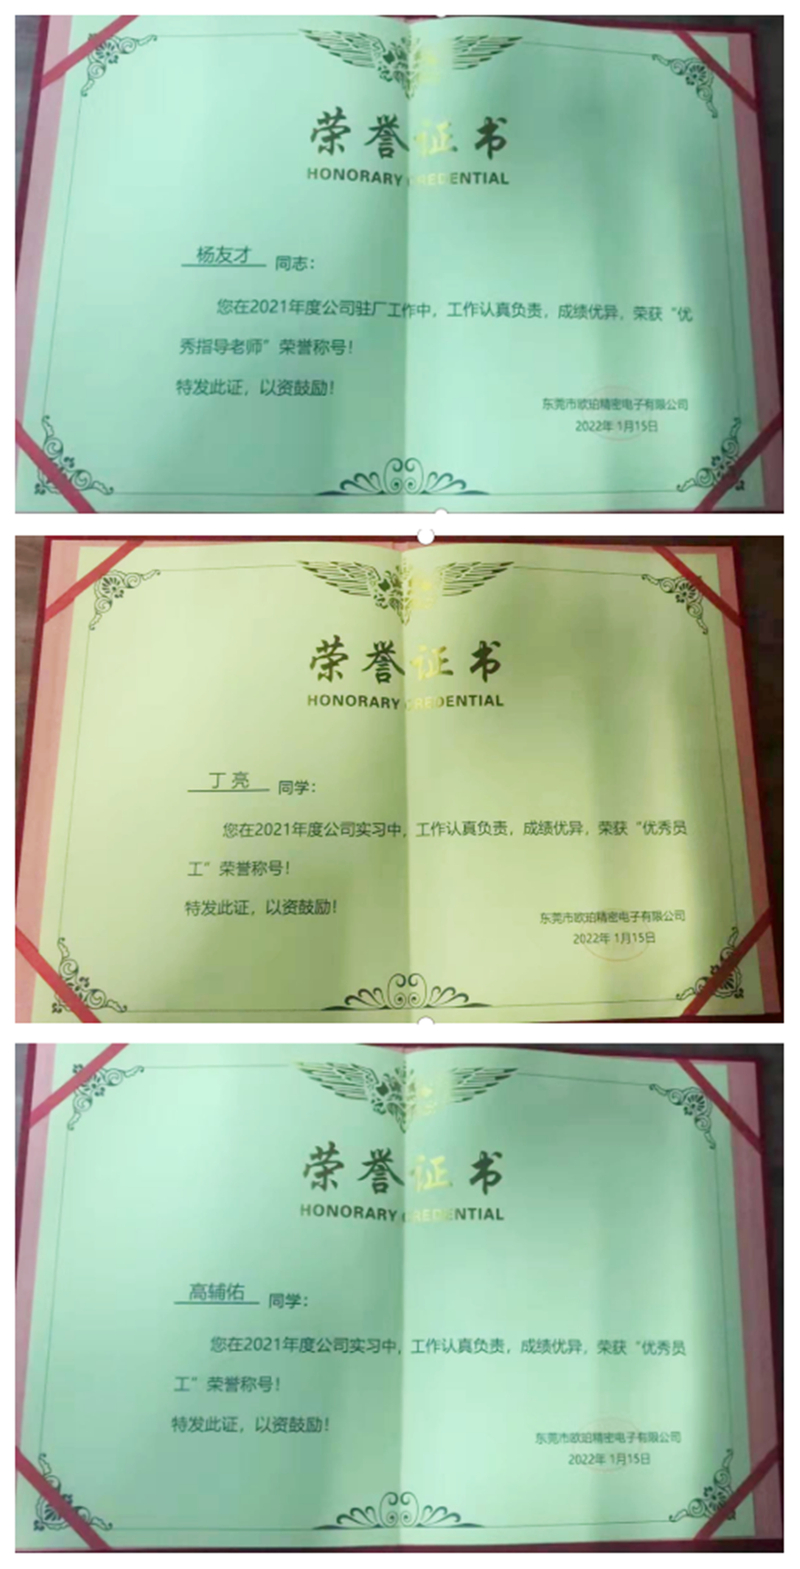 荣誉证书
HONORARY CREDENTIAL
杨友才 同志：
您在2021年度公司驻厂工作中，工作认真负责，成绩优异，荣获“优
秀指导老师”荣誉称号！
特发此证，以资鼓励！
东莞市欧珀精密电子有限公司
2022年 1月15日
荣誉证书
HONORARY CREDENTIAL
丁亮 同学：
您在2021年度公司实习中，工作认真负责，成绩优异，荣获“优秀员
工”荣誉称号！
特发此证，以资鼓励！
东莞市欧珀精密电子有限公司
2022年 1月15日
荣誉证书
HONORARY CREDENTIAL
高辅佑 同学：
您在2021年度公司实习中，工作认真负责，成绩优异，荣获“优秀员
工”荣誉称号！
特发此证，以资鼓励！
东莞市欧珀精密电子有限公司
2022年 1月15日